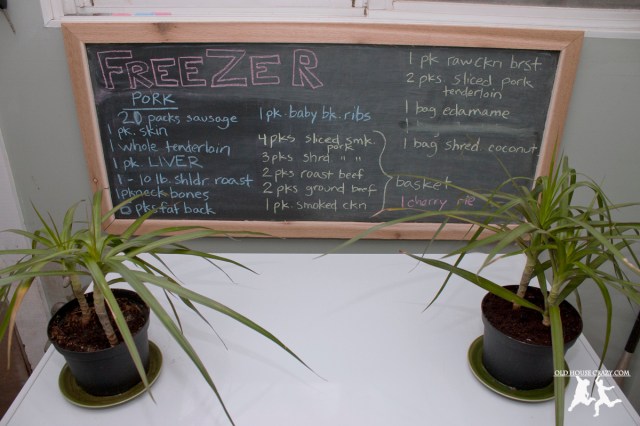 FREEZER
PORK
20 packs sausage
1 pk. skin
1 whole tenderloin
1 pk. LIVER
1 - 10 lb. shldr. roast
1 pk neck bones
6 pks fat back
1 pk. baby bk. ribs
4 pks sliced smk. pork
3 pks shrd " "
2 pks roast beef
2 pks ground beef
1 pk. smoked ckn
basket
1 pk raw ckn brst
2 pks sliced pork
tenderloin
1 bag edamame
1 bag shred coconut
1 cherry pie
OLD HOUSE CRAZY.COM